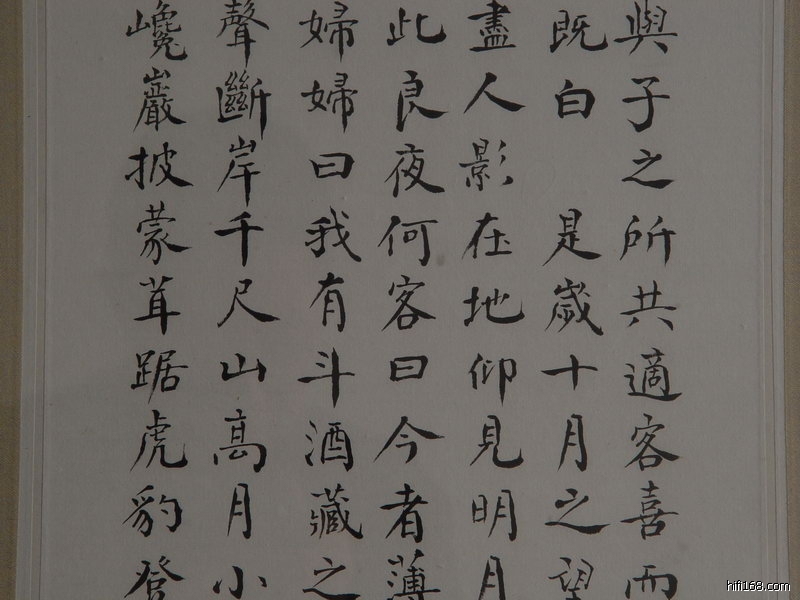 與子之所共適客喜而
既白 是歲十月之望
盡人影在地仰見明月
此良夜何客曰今者薄
婦婦曰我有斗酒藏之
聲斷岸千尺山高月小
巉巖披蒙茸踞虎豹登
hifi168.com